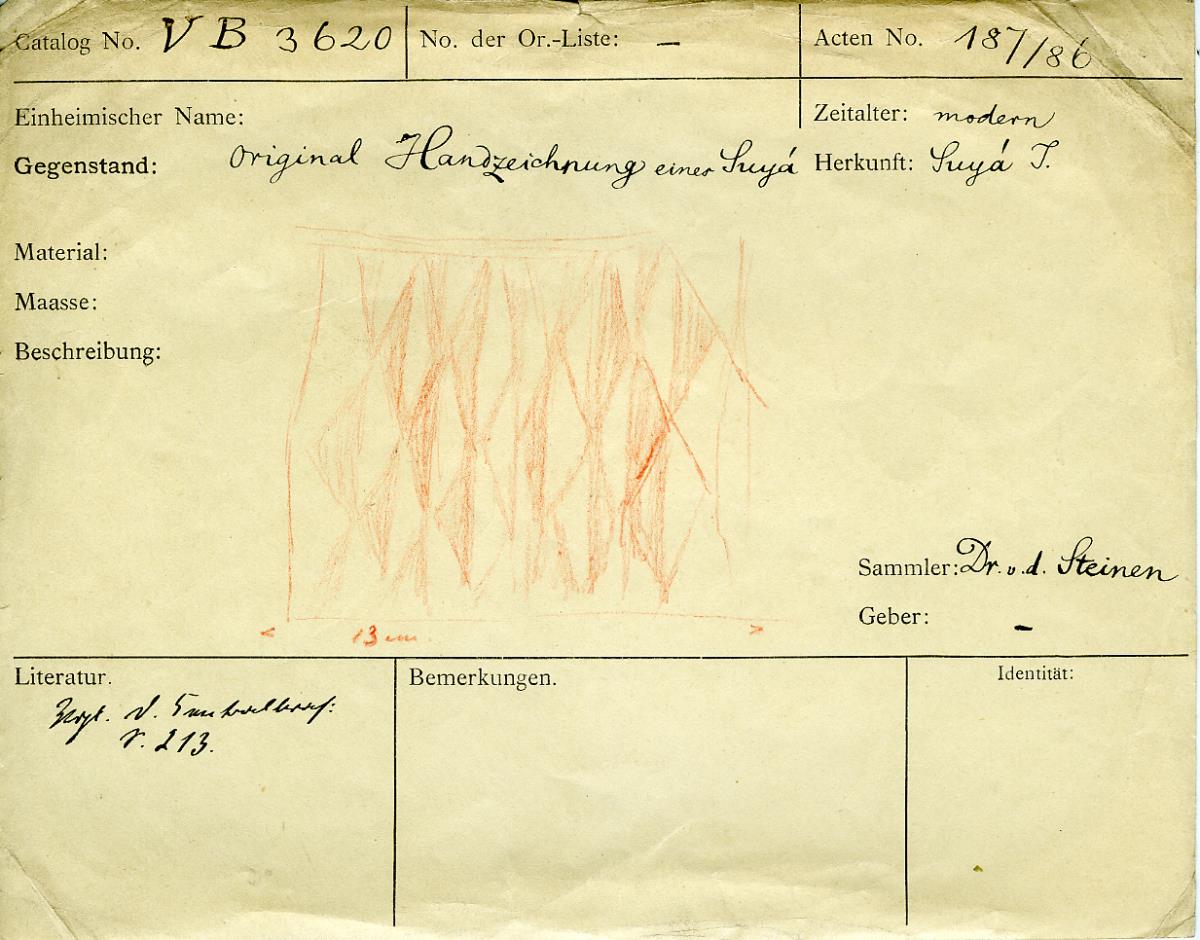 Catalog No. V B 3620 No. der Or.-Liste: — Acten No. 187/86
Einheimischer Name: Zeitalter: modern
Gegenstand: Original Handzeichnung eines Suyá Herkunft: Suyá I.
Material:
Maasse:
Beschreibung:
Sammler: Dr. v. d. Steinen
Geber: —
< 13 cm. >
Literatur. Bemerkungen. Identität:
d.
213.